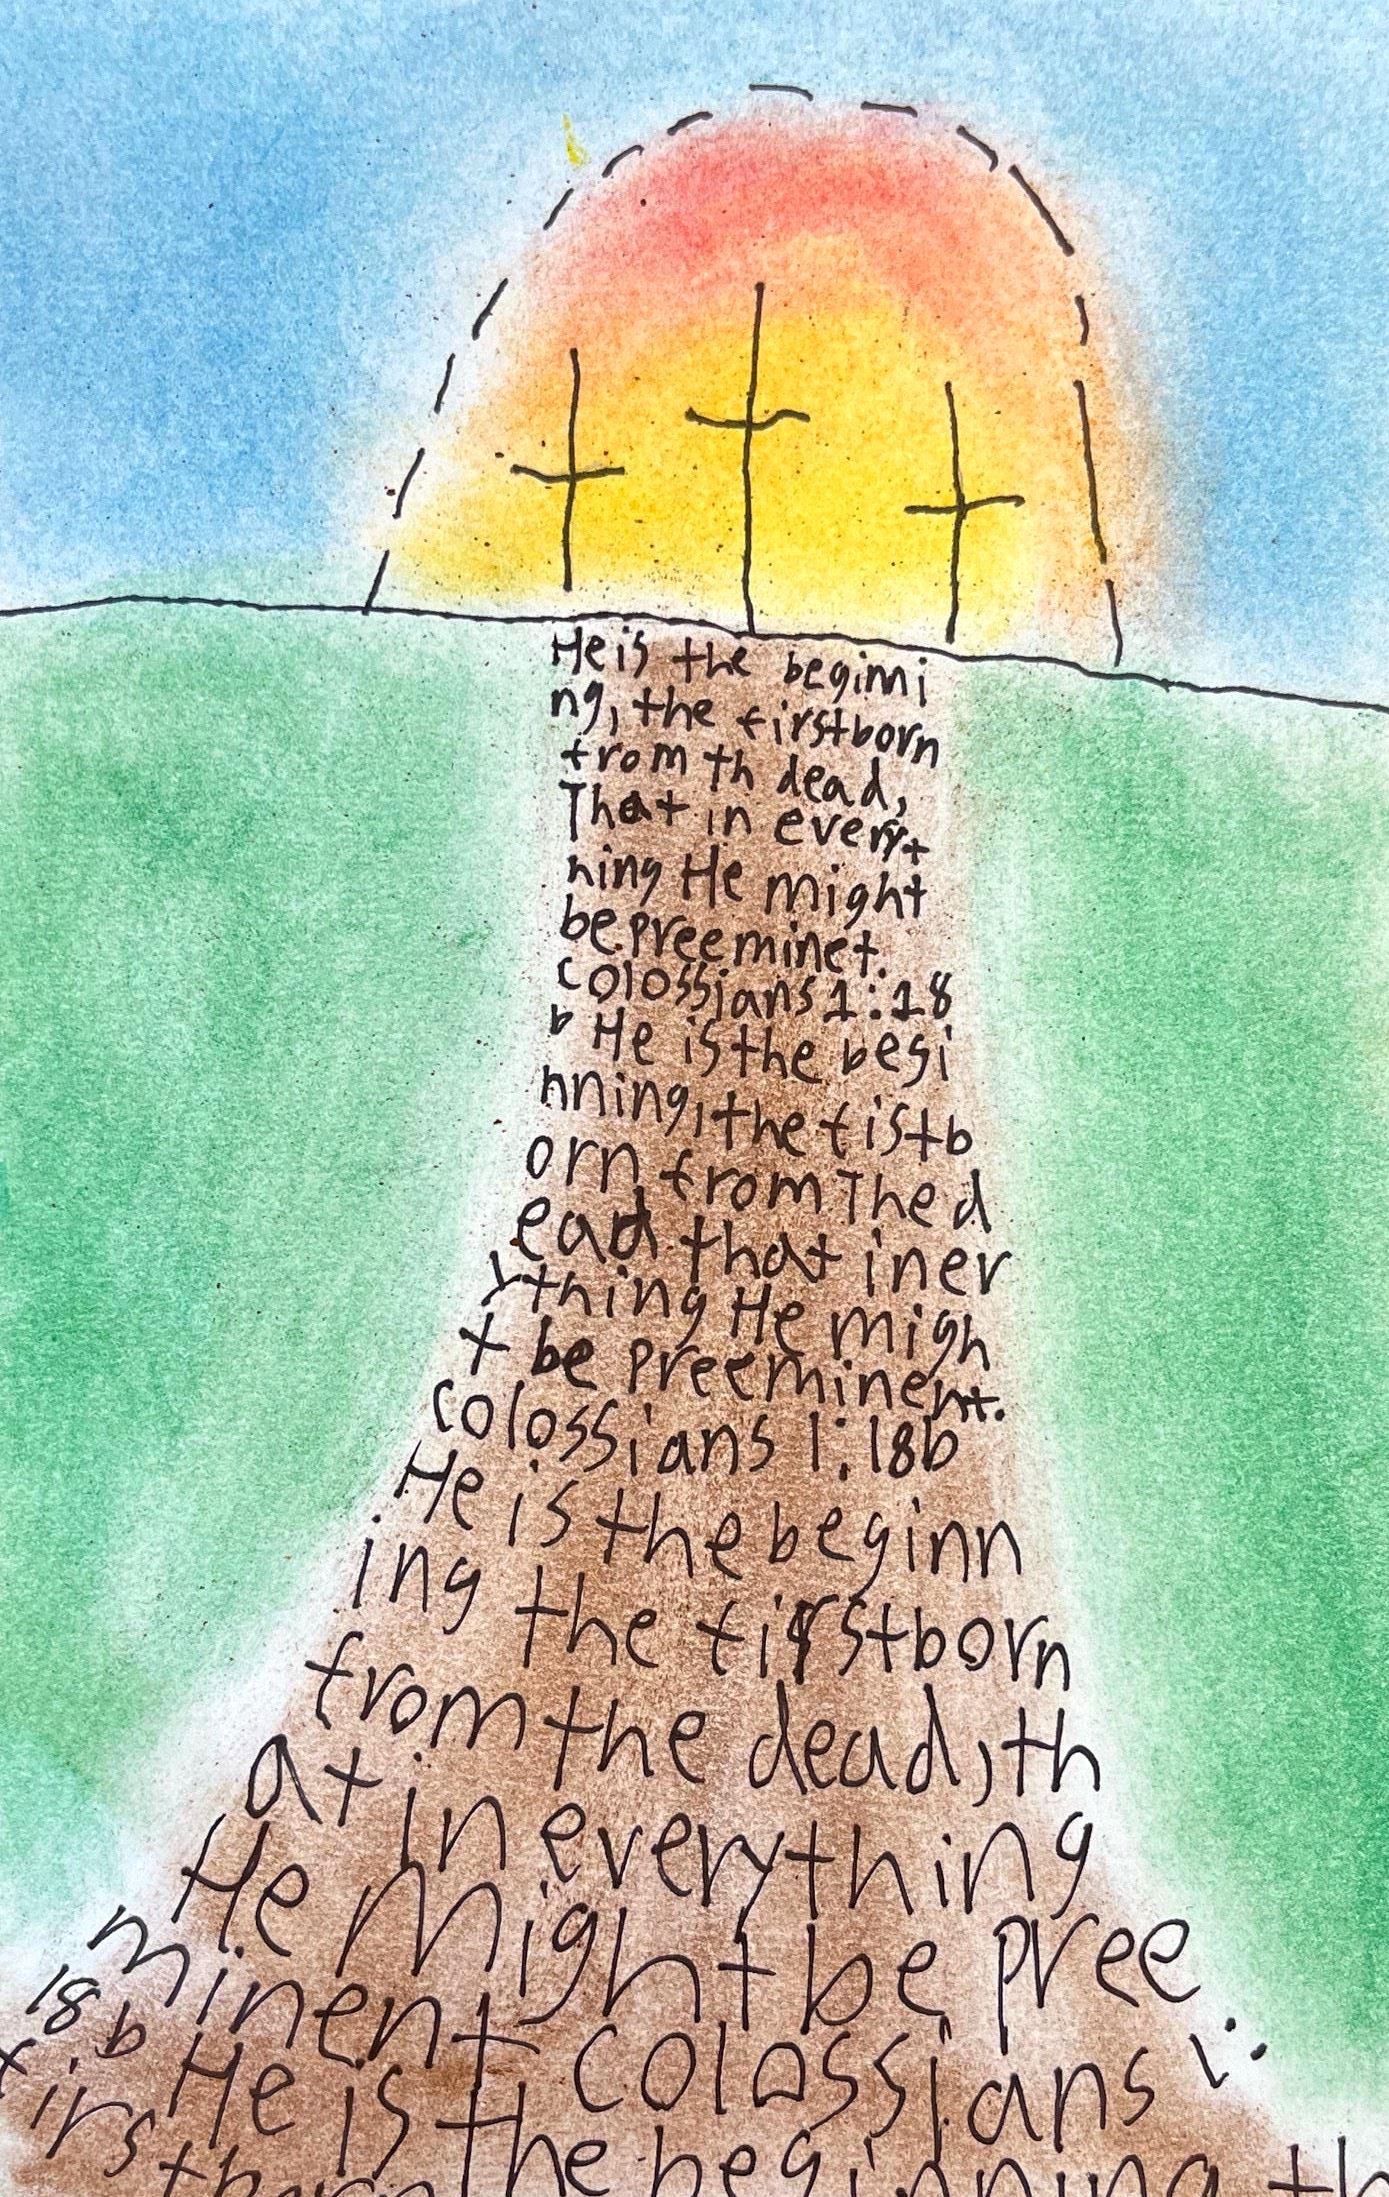 He is the beginni
ng, the firstborn
from th dead,
That in everyt
hing He might
be preeminet.
Colossians 1:18
b He is the begi
nning, the fistb
orn from The d
ead that in er
ything He migh
t be preeminent.
Colossians 1:18b
He is the beginn
ing the firstborn
from the dead, th
at in everything
He might be pree
minent Colossians 1:
18b He is the beginning th
firstborn